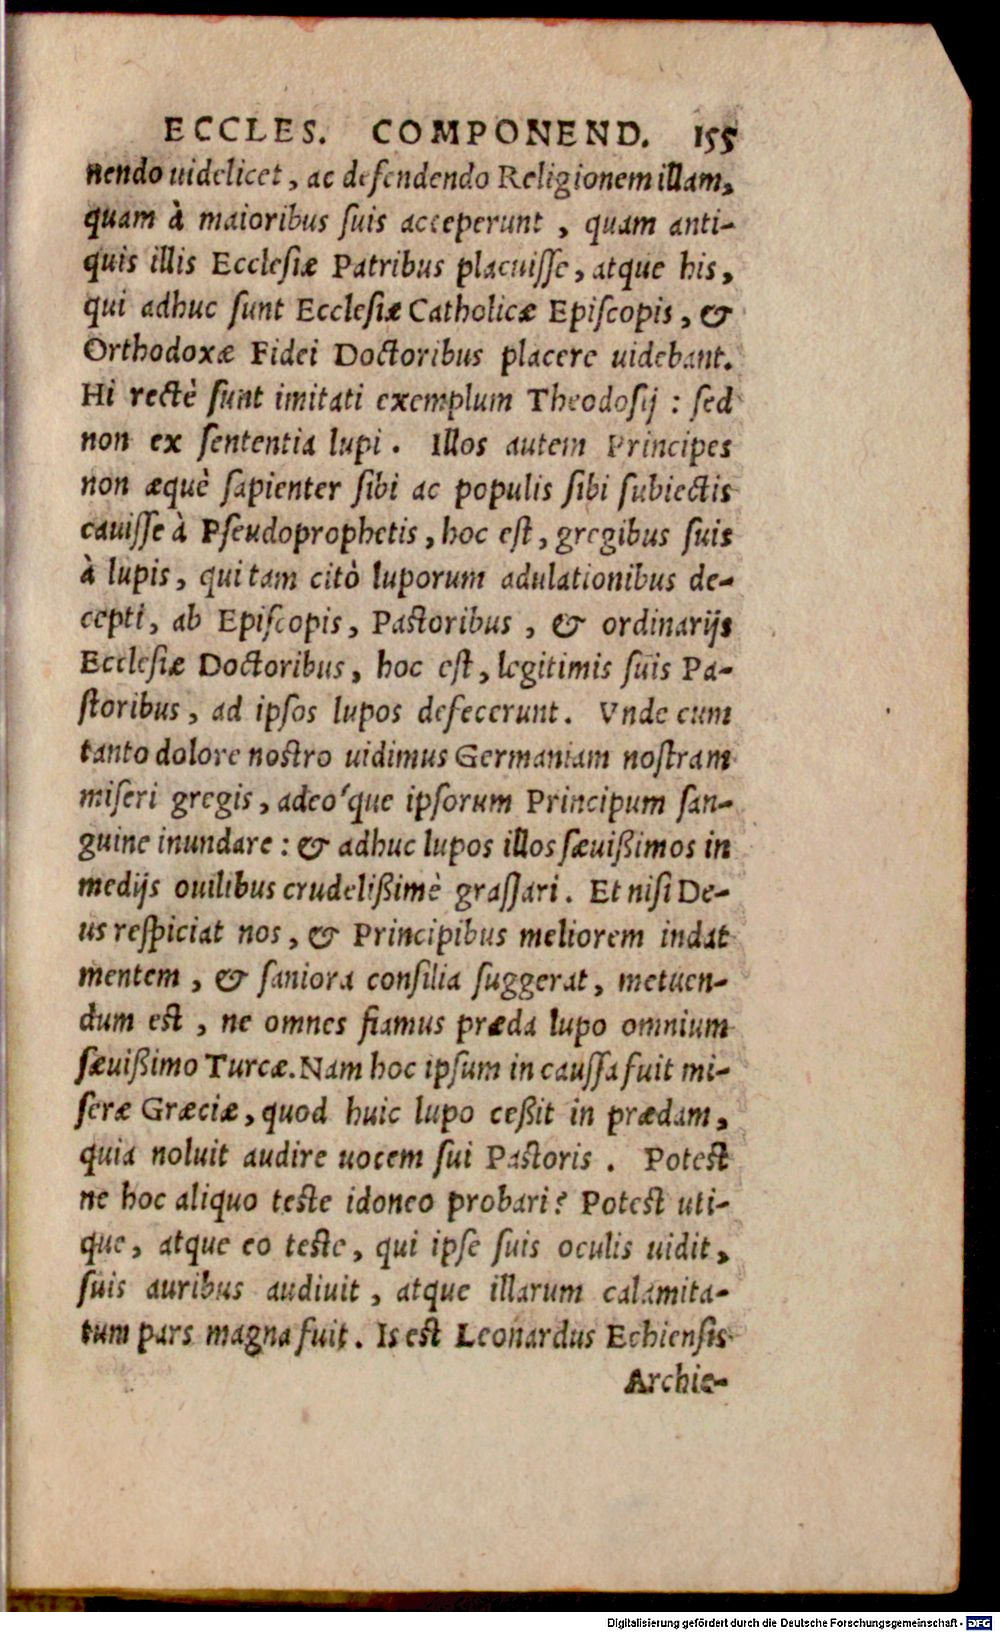 ECCLES. COMPONEND. 155
nendo uidelicet, ac defendendo Religionem illam,
quam à maioribus ſuis acceperunt, quam anti-
quis illis Eccleſiæ Patribus placuiſſe, atque his,
qui adhuc ſunt Eccleſiæ Catholicæ Epiſcopis, &
Orthodoxæ Fidei Doctoribus placere uidebant.
Hi rectè ſunt imitati exemplum Theodoſij: ſed
non ex ſententia lupi. Illos autem Principes
non æquè ſapienter ſibi ac populis ſibi ſubiectis
cauiſſe à Pſeudoprophetis, hoc eſt, gregibus ſuis
à lupis, qui tam citò luporum adulationibus de-
cepti, ab Epiſcopis, Paſtoribus, & ordinarijs
Eccleſiæ Doctoribus, hoc eſt, legitimis ſuis Pa-
ſtoribus, ad ipſos lupos defecerunt. Vnde cum
tanto dolore noſtro uidimus Germaniam noſtram
miſeri gregis, adeo'que ipſorum Principum ſan-
guine inundare: & adhuc lupos illos ſæuißimos in
medijs ouilibus crudelißimè graſſari. Et niſi De-
us reſpiciat nos, & Principibus meliorem indat
mentem, & ſaniora conſilia ſuggerat, metuen-
dum eſt, ne omnes fiamus præda lupo omnium
ſæuißimo Turcæ. Nam hoc ipſum in cauſſa fuit mi-
ſeræ Græciæ, quod huic lupo ceßit in prædam,
quia noluit audire uocem ſui Paſtoris. Poteſt
ne hoc aliquo teſte idoneo probari? Poteſt uti-
que, atque eo teſte, qui ipſe ſuis oculis uidit,
ſuis auribus audiuit, atque illarum calamita-
tum pars magna fuit. Is eſt Leonardus Echienſis
Archie-
Digitalisierung gefördert durch die Deutsche Forschungsgemeinschaft - DFG